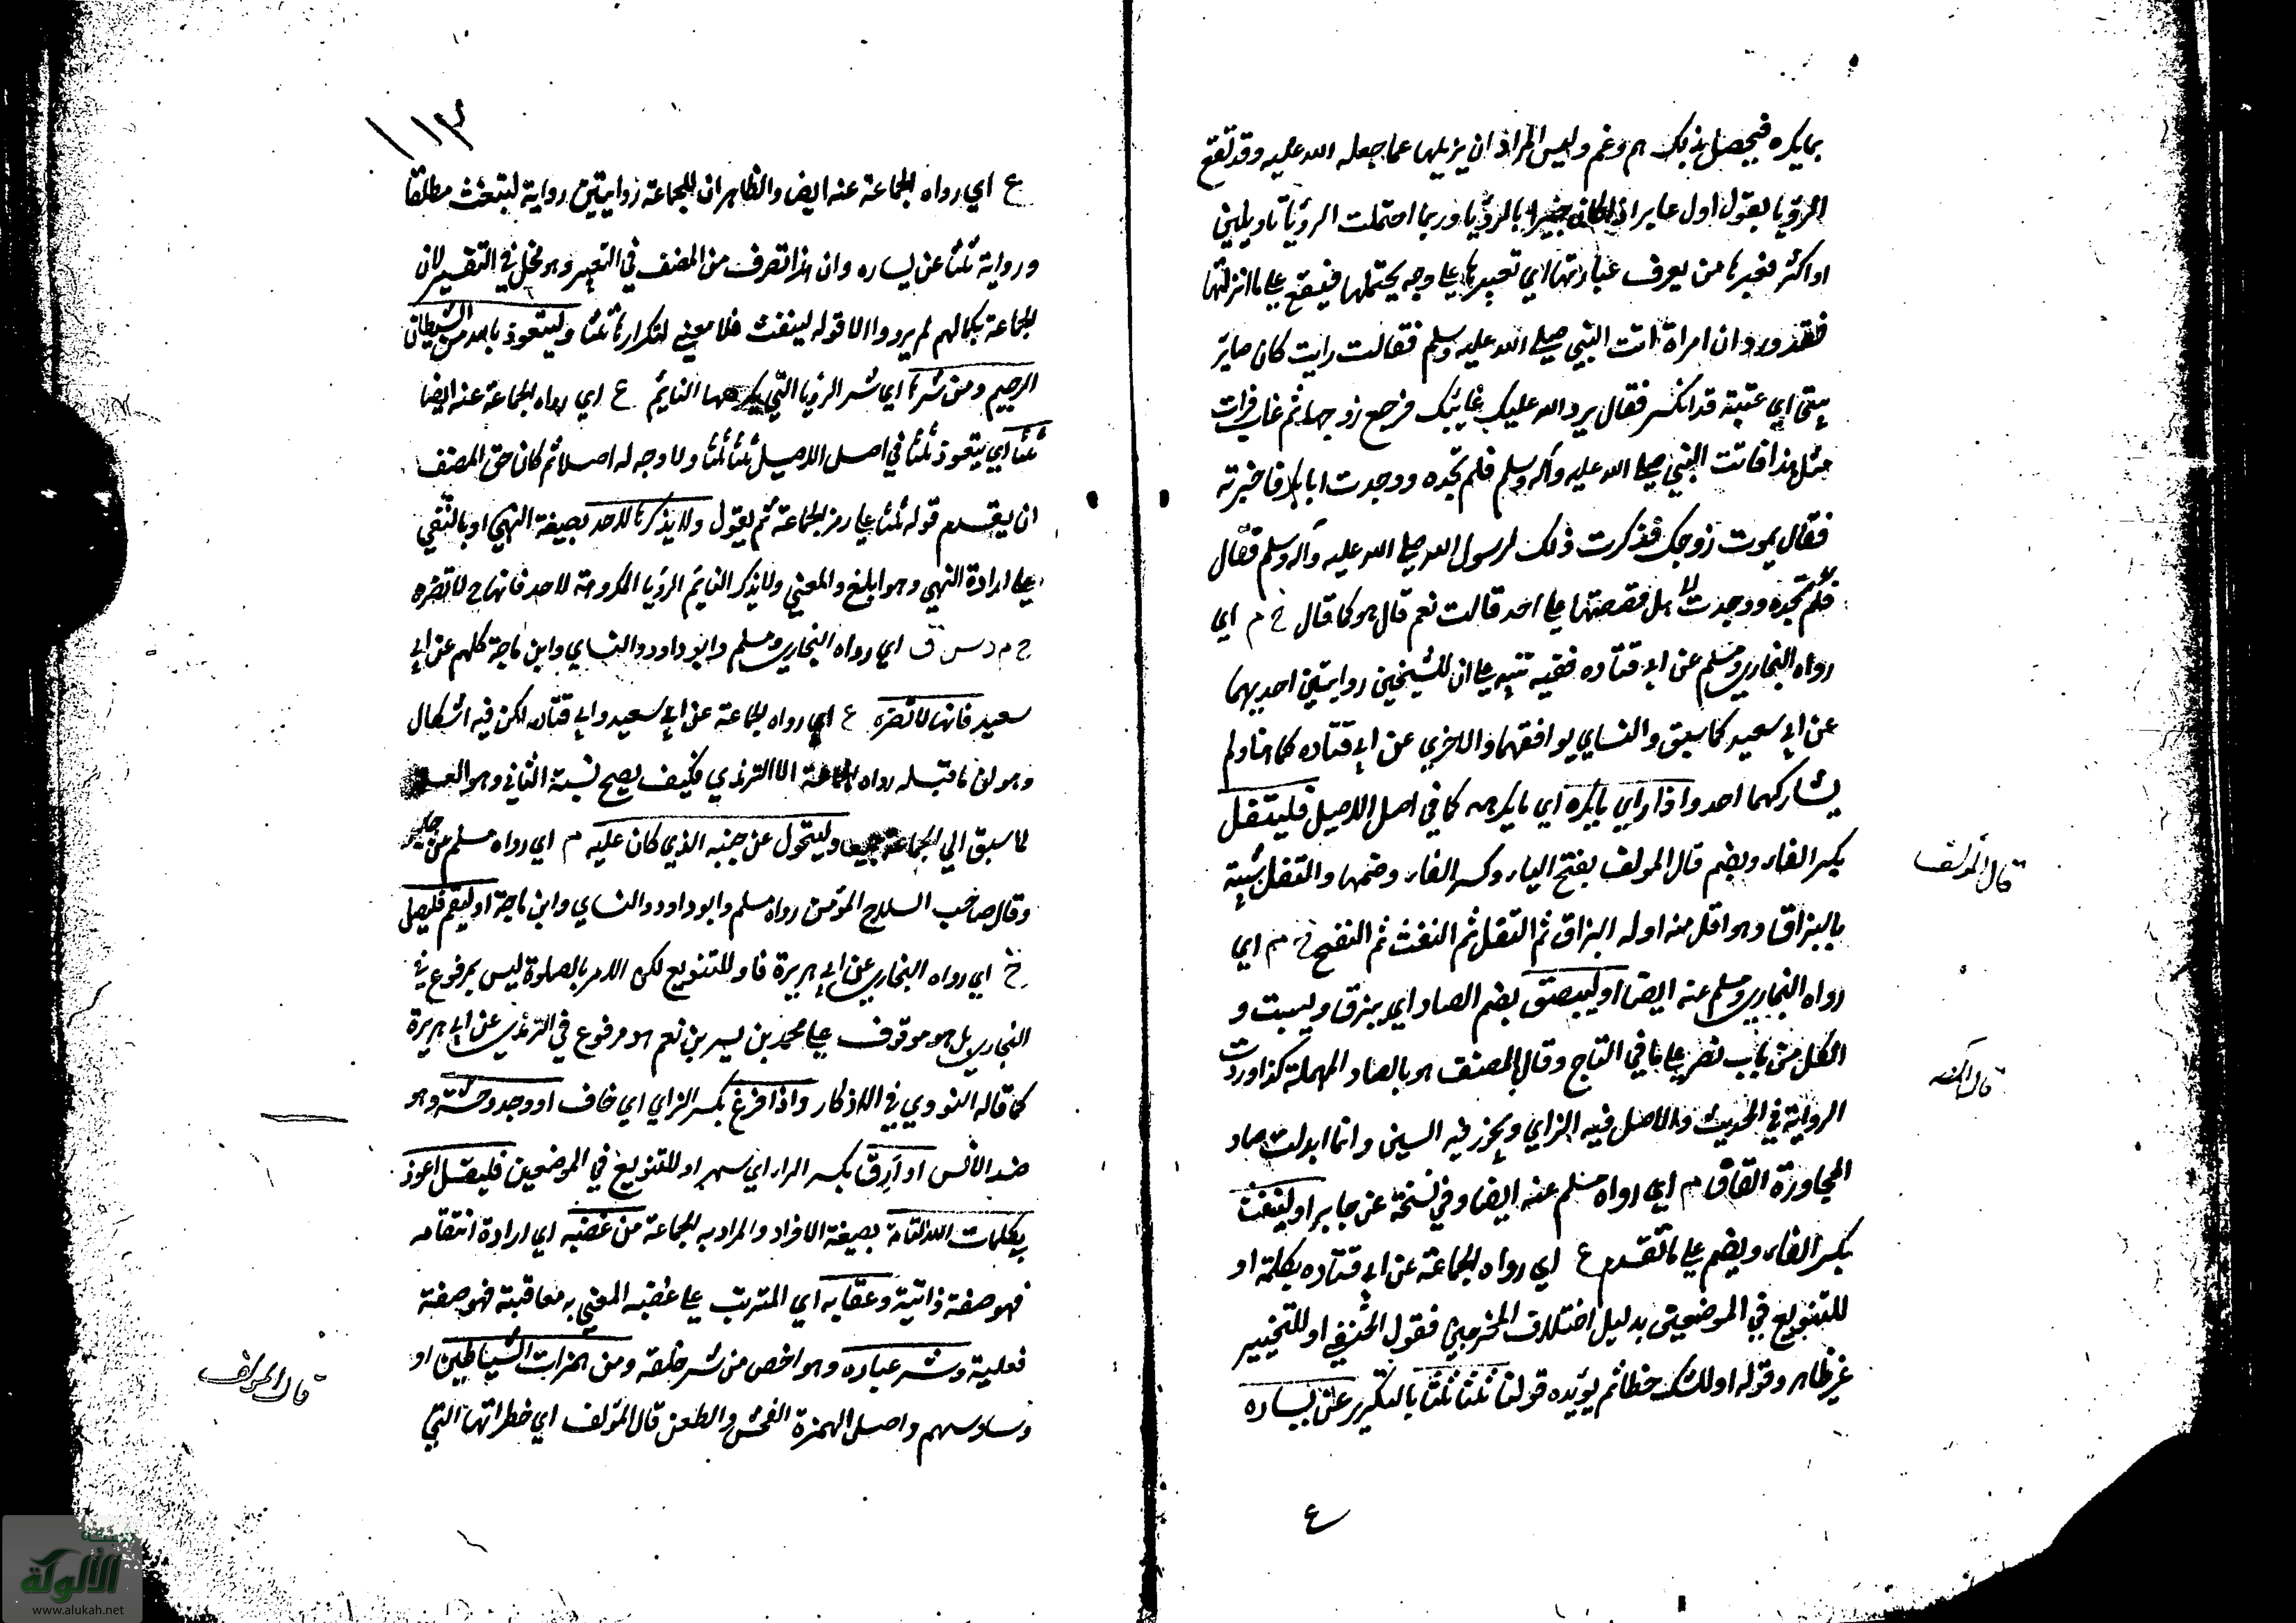 بما يكره فيحصل بذلك هم وغم وليس المراد ان يزيلها عما جعله الله عليه وقد تقع
الرؤيا بقول اول عابر اذا كان خبيرا بالرؤيا وربما احتملت الرؤيا تاويلين
او اكثر فعبرها من يعرف عبارتها اي تعبيرها على وجه يحتملها فيقع على ما انزلتها
فقد ورد ان امراة اتت النبي صلى الله عليه وسلم فقالت رايت كان جائز
بيتي اي عتبته قد انكسر فقال يرد الله عليك غائبك فرجع زوجها ثم غاب فرات
مثل هذا فاتت النبي صلى الله عليه وآله وسلم فلم تجده ووجدت ابا بكر فاخبرته
فقال يموت زوجك فذكرت ذلك لرسول الله صلى الله عليه وآله وسلم فقال
فلم تجده ووجدت هل قصصتها على احد قالت نعم قال هو كما قال خ م اي
رواه البخاري ومسلم عن ابي قتاده ففيه تنبيه على ان للشيخين روايتين احديهما
عن ابي سعيد كما سبق والنسايي يوافقهما والاخري عن ابي قتاده كما هنا ولم
يشاركهما احد واذا راي ما يكره اي ما يكرهه كما في اصل الاصيل فليتفل
بكسر الفاء ويضم قال المولف بفتح الياء وكسر الفاء وضمها والتفل شبيه
بالبزاق وهو اقل منه اوله البزاق ثم التفل ثم النفث ثم النفخ خ م اي
رواه البخاري ومسلم عنه ايضا او ليبصق بضم الصاد اي يبزق وليست و
الكل من باب نصر على ما في التاج وقال المصنف هو بالصاد المهملة كذا وردت
الرواية في الحديث والاصل فيه الزاي ويجوز فيه السين وانما ابدلت صاد
لمجاورة القاف م اي رواه مسلم عنه ايضا وفي نسخة عن جابر او لينفث
بكسر الفاء ويضم على ما تقدم ع اي رواه الجماعة عن ابي قتاده بكلمة او
للتنويع في الموضعين بدليل اختلاف المخرجين فقول الحنفي او للتخيير
غير ظاهر وقوله او للشك خطا ثم يؤيده قولنا ثلثا ثلثا بالتكرير عن يساره
ع
قال المولف
قال المصنف
١١٣
ع اي رواه الجماعة عنه ايضا والظاهر ان للجماعة روايتين رواية لينفث مطلقا
ورواية ثلثا عن يساره وان هذا تصرف من المصنف في التعبير وهو مخل في التفسير لان
الجماعة بكمالهم لم يرووا الا قوله لينفث فلا معنى لتكرارها ثلثا وليتعوذ بالله من الشيطان
الرجيم ومن شرها اي شر الرؤيا التي يكرهها النايم ع اي رواه الجماعة عنه ايضا
ثلثا اي يتعوذ ثلثا في اصل الاصيل ثلثا ثلثا ولا وجه له اصلا ثم كان حق المصنف
ان يقدم قوله ثلثا على رمز الجماعة ثم يقول ولا يذكرها لاحد بصيغة النهي او بالنفي
على ارادة النهي وهو ابلغ والمعنى ولا يذكر النايم الرؤيا المكروهة لاحد فانها ح لا تضره
خ م د س ق اي رواه البخاري ومسلم وابو داود والنسايي وابن ماجة كلهم عن ابي
سعيد فانها لا تضره ع اي رواه الجماعة عن ابي سعيد وابي قتاده لكن فيه اشكال
وهو ان ما قبله رواه الجماعة الا الترمذي فكيف يصح نسبة الثاني وهو العلة
لما سبق الي الجماعة جميعا وليتحول عن جنبه الذي كان عليه م اي رواه مسلم عن جابر
وقال صاحب السلاح المؤمن رواه مسلم وابو داود والنسايي وابن ماجة او ليقم فليصل
خ اي رواه البخاري عن ابي هريرة فاو للتنويع لكن الامر بالصلوة ليس بمرفوع في
البخاري بل هو موقوف على محمد بن سيرين نعم هو مرفوع في الترمذي عن ابي هريرة
كما قاله النووي في الاذكار واذا فزع بكسر الزاي اي خاف او وجد وحشة وهو
ضد الانس او ارق بكسر الراء اي سهر او للتنويع في الموضعين فليقل اعوذ
بكلمات الله التامة بصيغة الافراد والمراد به الجماعة من غضبه اي ارادة انتقامه
فهو صفة ذاتية وعقابه اي المترتب على غضبه المعني به معاقبته فهو صفة
فعلية وشر عباده وهو اخص من شر خلقه ومن همزات الشياطين او
وساوسهم واصل الهمزة الفحش والطعن قال المؤلف اي خطراتها التي
قال المولف
شبكة
الألوكة
www.alukah.net